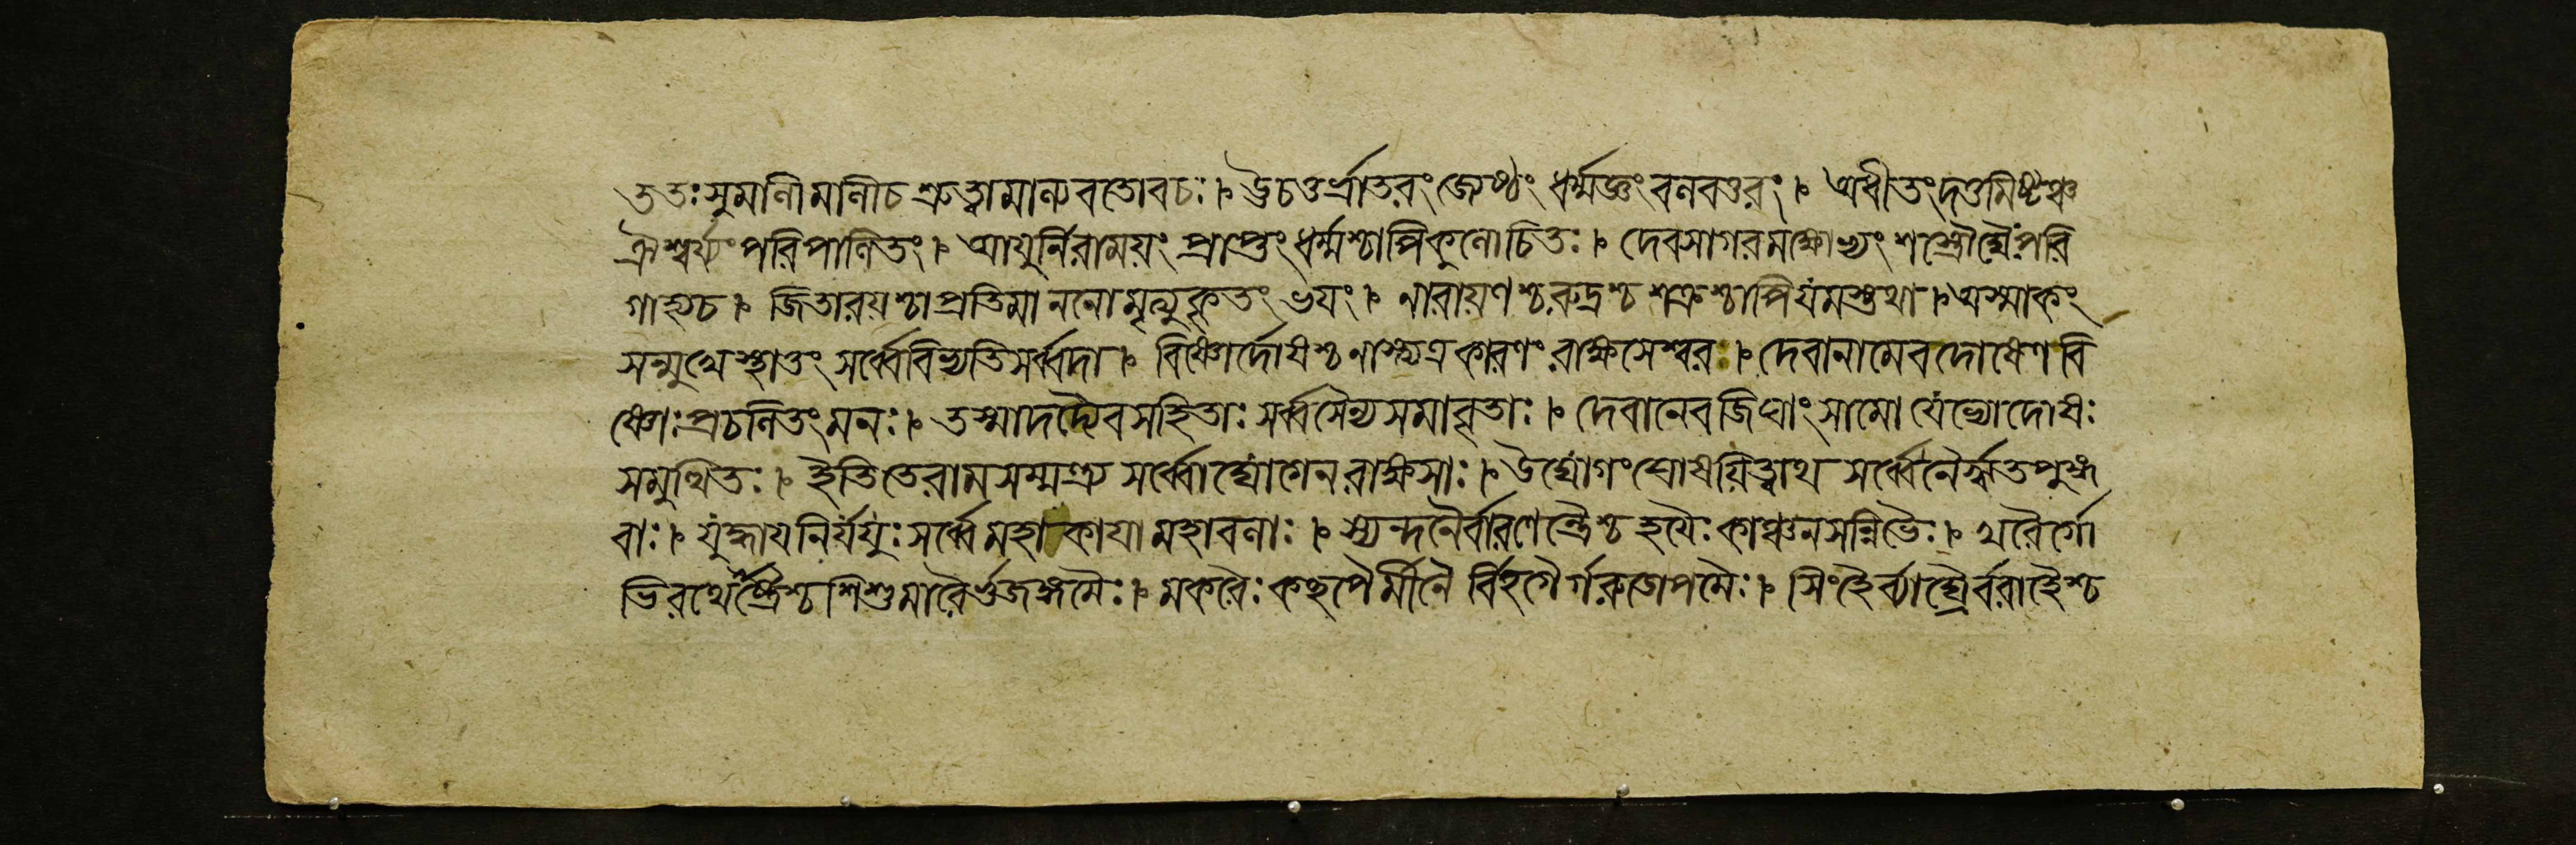 ততঃসুমালীমালীচশ্রুত্বামাল্যবতোবচঃ। উচতুর্ভ্রাতরংজ্যেষ্ঠং ধর্ম্মজ্ঞংবলবত্তরং। অধীতংদত্তমিষ্টঞ্চ
ঐশ্বর্য্যংপরিপালিতং। আয়ুর্নিরাময়ং প্রাপ্তং ধর্ম্মশ্চাপিকুলোচিতঃ। দেবসাগরমক্ষোভ্যং শস্ত্রৌঘৈঃপরি
গাহ্যচ। জিতারয়শ্চাপ্রতিমা ননোমৃত্যুকৃতং ভয়ং। নারায়ণশ্চরুদ্রশ্চ শক্রশ্চাপিযমস্তথা। অস্মাকং
সন্মুখেস্থাতুং সর্ব্বেবিভ্যতিসর্ব্বদা। বিষ্ণোর্দোষশ্চনাস্ত্যেত্রকারণং রাক্ষসেশ্বর। দেবানামেবদোষেণবি
ষ্ণোঃপ্রচলিতংমনঃ। তস্মাদদ্যৈবসহিতাঃ সর্ব্বসৈন্যসমাবৃতাঃ। দেবানেবজিঘাংসামো যেভ্যোদোষঃ
সমুত্থিতঃ। ইতিতেরামসম্মন্ত্র্য সর্ব্বোদ্যোগেনরাক্ষসাঃ। উদ্যোগংঘোষয়িত্বাথ সর্ব্বেনৈরৃতপুঙ্গ
বাঃ। যুদ্ধায়নির্যযুঃসর্ব্বে মহাকায়ামহাবলাঃ। স্যন্দনৈর্বারণেন্দ্রৈশ্চহয়ৈঃকাঞ্চনসন্নিভৈঃ। খরৈর্গো
ভিরথোষ্ট্রৈশ্চশিশুমারৈর্ভুজঙ্গমৈঃ। মকরৈঃকচ্ছপৈর্মীনৈ র্বিহগৈর্গরুড়োপমৈঃ। সিংহৈর্ব্যাঘ্রৈর্বরাহৈশ্চ